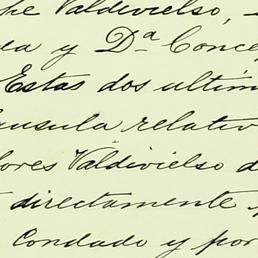 Valdivielso,
y Dª Conce
Estas dos últim
ausula relativ
lores Valdivielso d
directamente
condado y por